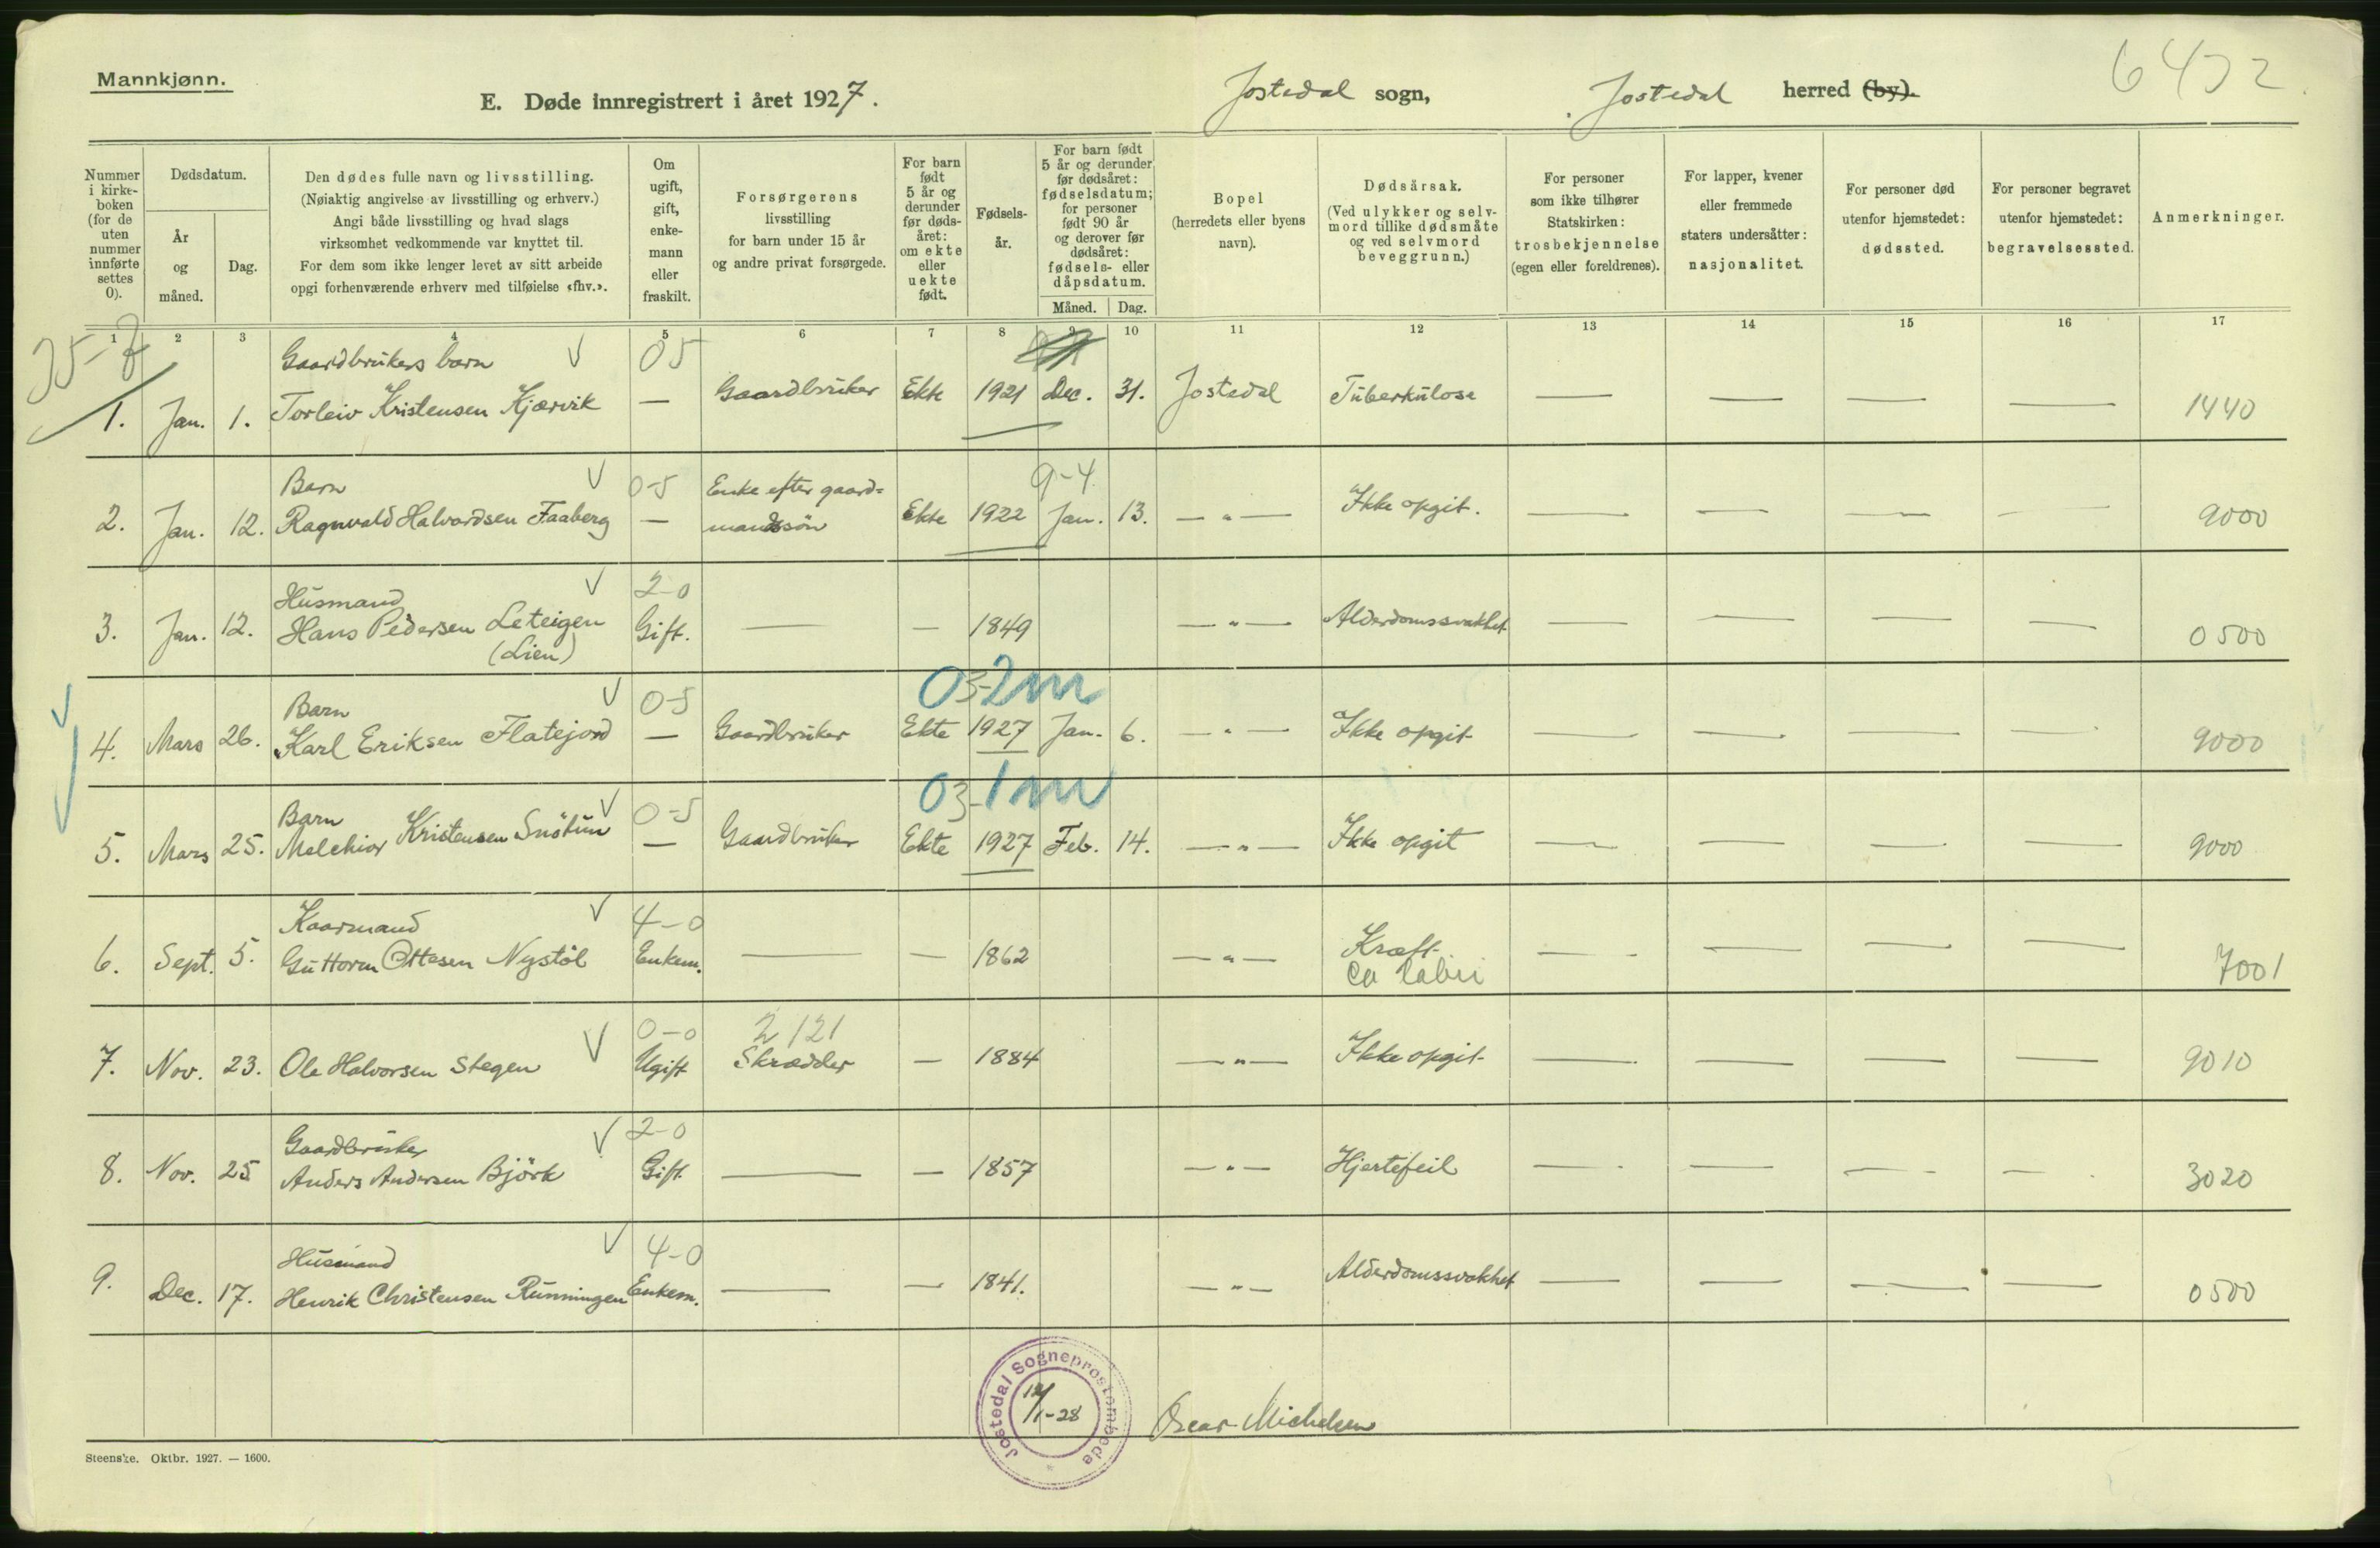 Mannkjønn.
E. Døde innregistrert i året 1927.
Jostedal sogn,
Jostedal herred (by).
Nummer i kirke-boken (for de uten nummer innførte settes 0).
Dødsdatum.
År og måned.
Dag.
Den dødes fulle navn og livsstilling.
(Nøiaktig angivelse av livsstilling og erhverv.)
Angi både livsstilling og hvad slags
virksomhet vedkommende var knyttet til.
For dem som ikke lenger levet av sitt arbeide
opgi forhenværende erhverv med tilføielse «fhv.».
Om ugift, gift, enke-mann eller fraskilt.
Forsørgerens livsstilling for barn under 15 år og andre privat forsørgede.
For barn født 5 år og derunder før døds-året: om ekte eller uekte født.
Fødsels-år.
For barn født 5 år og derunder før dødsåret: fødselsdatum; for personer født 90 år og derover før dødsåret: fødsels- eller dåpsdatum.
Måned. Dag.
Bopel (herredets eller byens navn).
Dødsårsak. (Ved ulykker og selv-mord tillike dødsmåte og ved selvmord beveggrunn.)
For personer som ikke tilhører Statskirken: trosbekjennelse (egen eller foreldrenes).
For lapper, kvener eller fremmede staters undersåtter: nasjonalitet.
For personer død utenfor hjemstedet: dødssted.
For personer begravet utenfor hjemstedet: begravelsessted.
Anmerkninger.
1 2 3 4 5 6 7 8 9 10 11 12 13 14 15 16 17
Gaardbrukers barn V 05
1. Jan. 1. Torleiv Kristensen Kjærvik — Gaardbruker Ekte 1921 Dec. 31. Jostedal Tuberkulose — — — — 1440
Barn V 0-5 Enke efter gaard= 9-4
2. Jan. 12. Ragnvald Halvordsen Faaberg — mandssøn Ekte 1922 Jan. 13. — " — Ikke opgit. — — — — 9000
Husmand V 2-0
3. Jan. 12. Hans Pedersen Leteigen Gift. — — 1849 — " — Alderdomssvakhet — — — — 0500
(Lien)
Barn V 0-5 03-2m
4. Mars 26. Karl Eriksen Flatejord — Gaardbruker Ekte 1927 Jan. 6. — " — Ikke opgit — — — — 9000
Barn V 0-5 03-1m
5. Mars 25. Melchior Kristensen Snötun — Gaardbruker Ekte 1927 Feb. 14. — " — Ikke opgit — — — — 9000
Kaarmand V 4-0
6. Sept. 5. Guttorm Ottesen Nystöl Enkem. — — 1862 — " — Kræft — — — — 7001
Ca labii
V 0-0 2121
7. Nov. 23. Ole Halvorsen Stegen Ugift Skrædder — 1884 — " — Ikke opgit — — — — 9010
Gaardbruker V 2-0
8. Nov. 25 Anders Andersen Björk Gift. — — 1857 — " — Hjertefeil — — — — 3020
Husmand V 4-0
9. Dec. 17. Henrik Christensen Rünningen Enkem. — — 1841. — " — Alderdomssvakhet — — — — 0500
Jostedal Sogneprestembede
1-28
Oscar Michelsen
Steenske. Oktbr. 1927. — 1600.